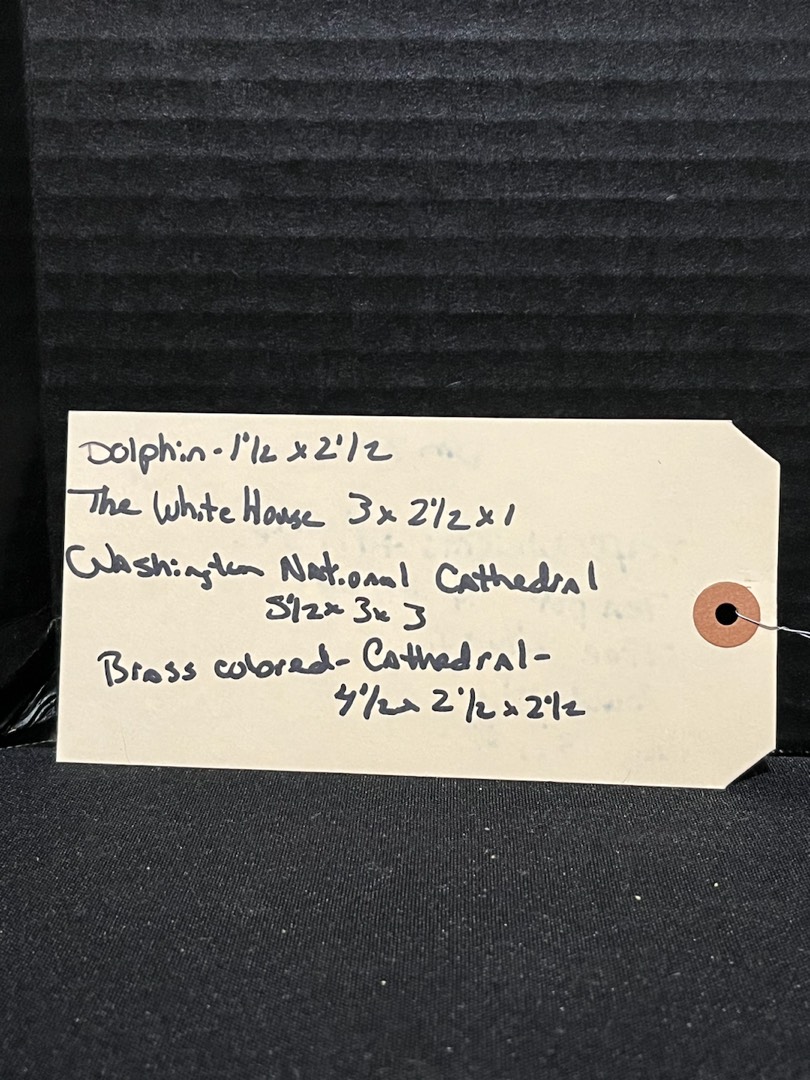 Dolphin - 1 1/2 x 2 1/2
The White House 3 x 2 1/2 x 1
Washington National Cathedral
5 1/2 x 3 x 3
Brass colored - Cathedral -
4 1/2 x 2 1/2 x 2 1/2